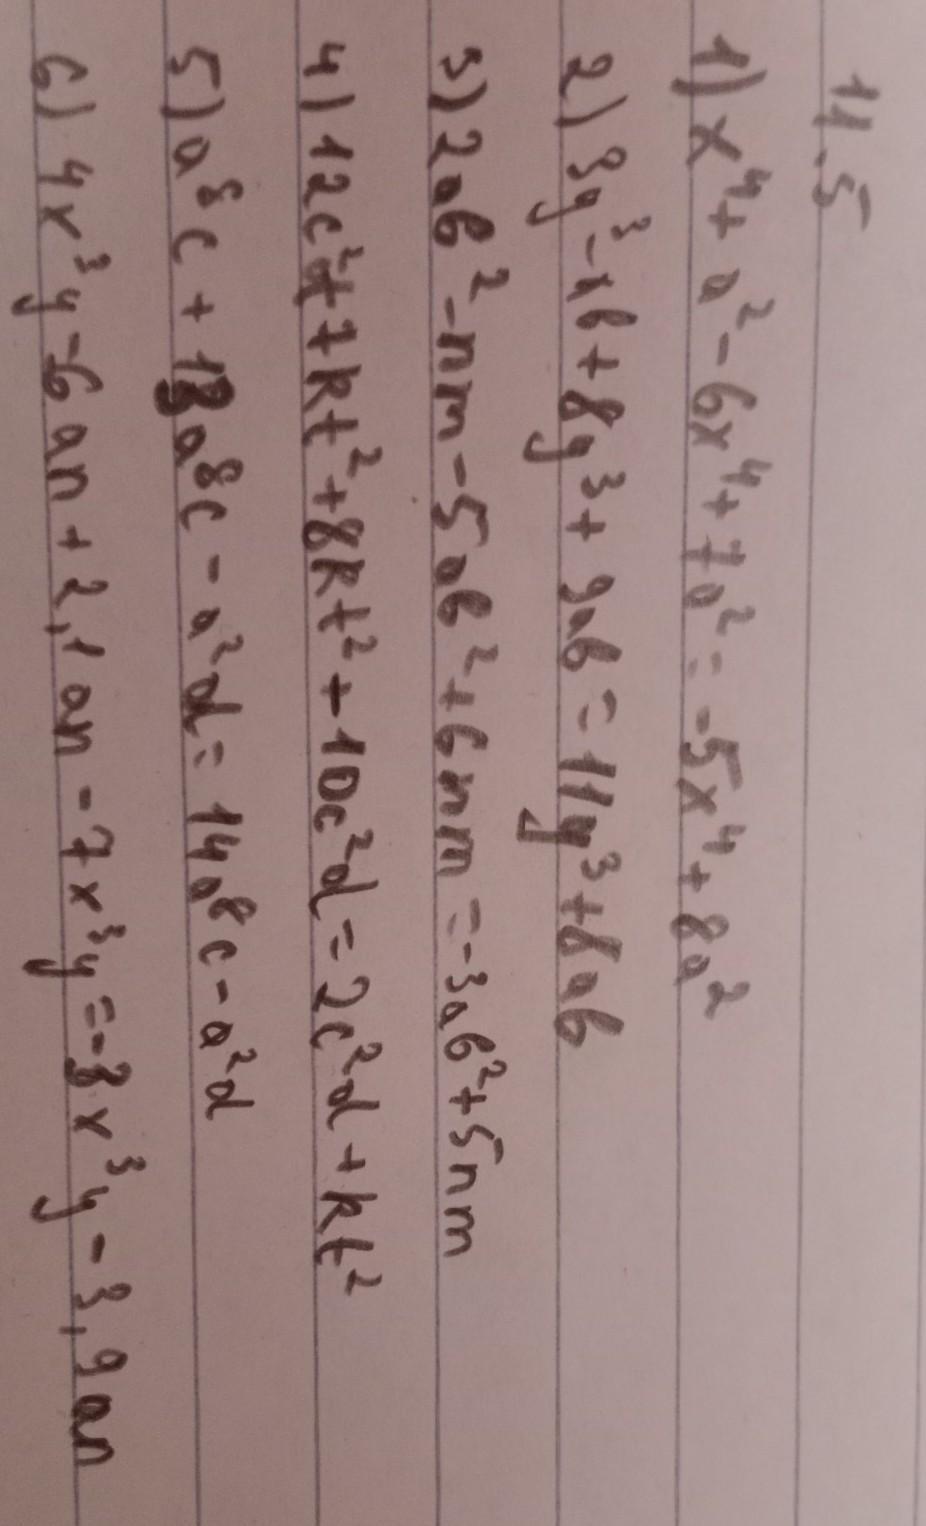 11.5
1) x⁴ + a² - 6x⁴ + 7a² = -5x⁴ + 8a²
2) 3y³ - ab + 8y³ + 9ab = 11y³ + 8ab
3) 2ab² - nm - 5ab² + 6nm = -3ab² + 5nm
4) 12c²d + 7kt² + 8kt² - 10c²d = 2c²d + kt²
5) a⁸c + 13a⁸c - a²d = 14a⁸c - a²d
6) 4x³y - 6an + 2,1an - 7x³y = -3x³y - 3,9an